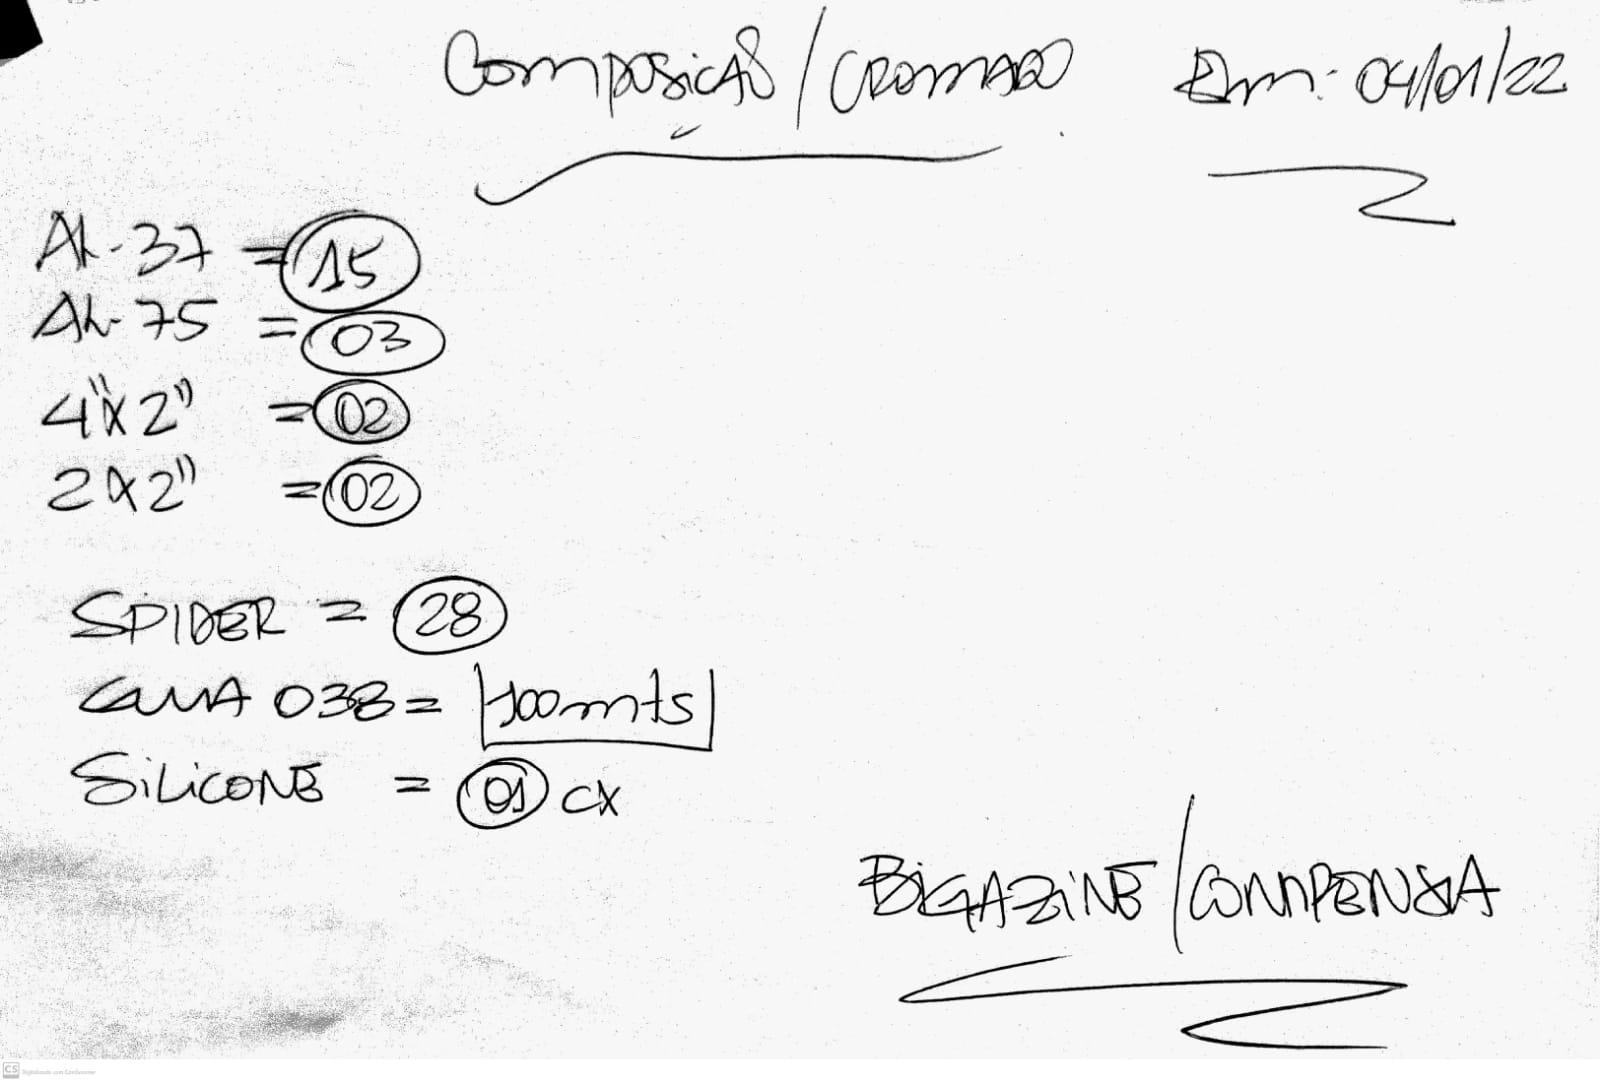 Composição/CROMADO Em: 04/01/22
AL-37 = 15
AL-75 = 03
4"x2" = 02
2x2" = 02
SPIDER = 28
038 = 100mts
SiLiCONE = 01 CX
BiGAZiNE/COMPENSA
CS Digitalizado com CamScanner